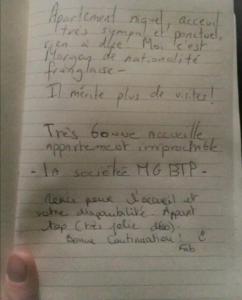 Apartement niquel, acceuil
très sympat et ponctuel,
rien à dire! Moi c'est
Morgan de nationalité
française -
Il mérite plus de visites!
Très bonne accueille
appartement irréprochable
- la société MG BTP -
Merci pour l'accueil et
votre disponibilité. Appart
top (très jolie déco).
Bonne Continuation!
Fab